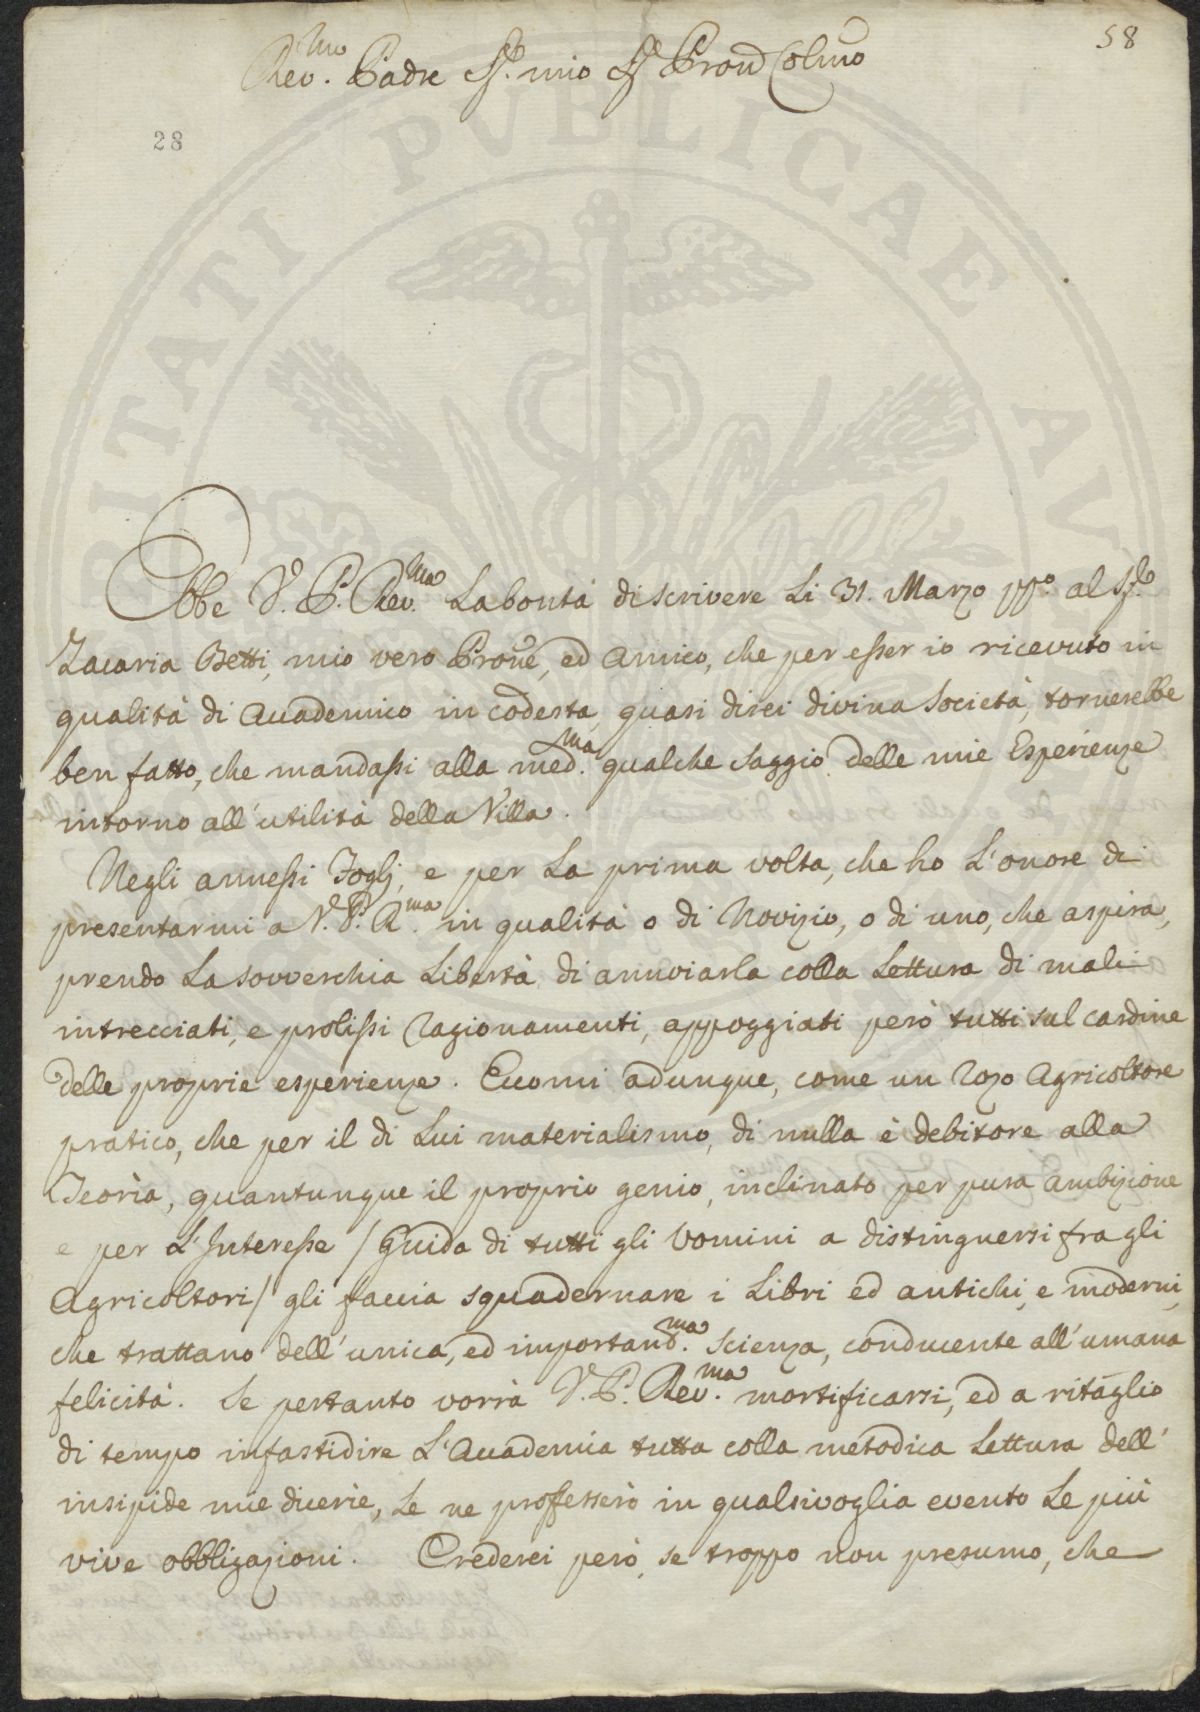 58
Rev.mo Padre Sig.r mio Sig.r Pron Colmo
28
PUBLICAE
Ebbe V. P. Rev.ma La bontà di scrivere Li 31. Marzo pp.o al Sig.r
Zacaria Betti, mio vero Prone, ed Amico, che per esser io ricevuto in
qualità di Accademico in codesta, quasi direi divina Società, tornerebbe
ben fatto, che mandassi alla med.ma qualche saggio delle mie Esperienze
intorno all'utilità della Villa.
Negli annessi Foglj, e per La prima volta, che ho L'onore di
presentarmi a V. P. R.ma in qualità o di Novizio, o di uno, che aspira,
prendo La sovverchia Libertà di annoiarla colla Lettura di mali
intrecciati, e prolissi Ragionamenti, appoggiati però tutti sul cardine
delle proprie esperienze. Eccomi adunque, come un Rozo Agricoltore
pratico, che per il di Lui materialismo, di nulla è debitore alla
Teoria, quantunque il proprio genio, inclinato per pura ambizione
e per L'Interesse /Guida di tutti gli Uomini a distinguersi fra gli
Agricoltori/ gli faccia squadernare i Libri ed antichi, e moderni,
che trattano dell'unica, ed importand.ma Scienza, conducente all'umana
felicità. Se pertanto vorrà V. P. Rev.ma mortificarsi, ed a ritaglio
di tempo infastidire L'Accademia tutta colla metodica Lettura dell'
insipide mie dicerie, Le ne professerò in qualsivoglia evento Le più
vive obbligazioni. Crederei però, se troppo non presumo, che